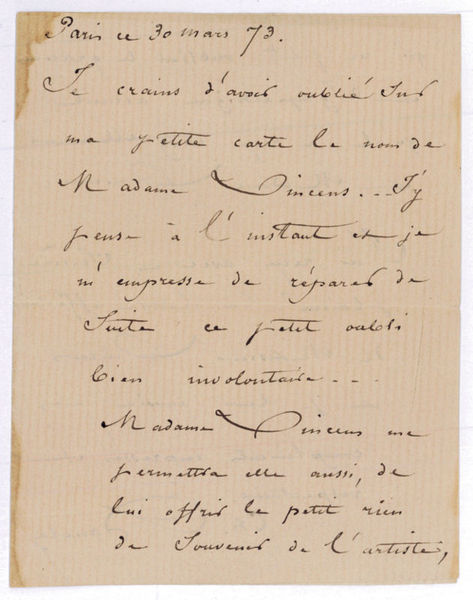 Paris ce 30 mars 73.
Je crains d'avoir oublié sur
ma petite carte le nom de
Madame Vincens... J'y
pense à l'instant et je
m'empresse de réparer de
suite ce petit oubli
bien involontaire...
Madame Vincens me
permettra elle aussi, de
lui offrir le petit rien
de souvenir de l'artiste,